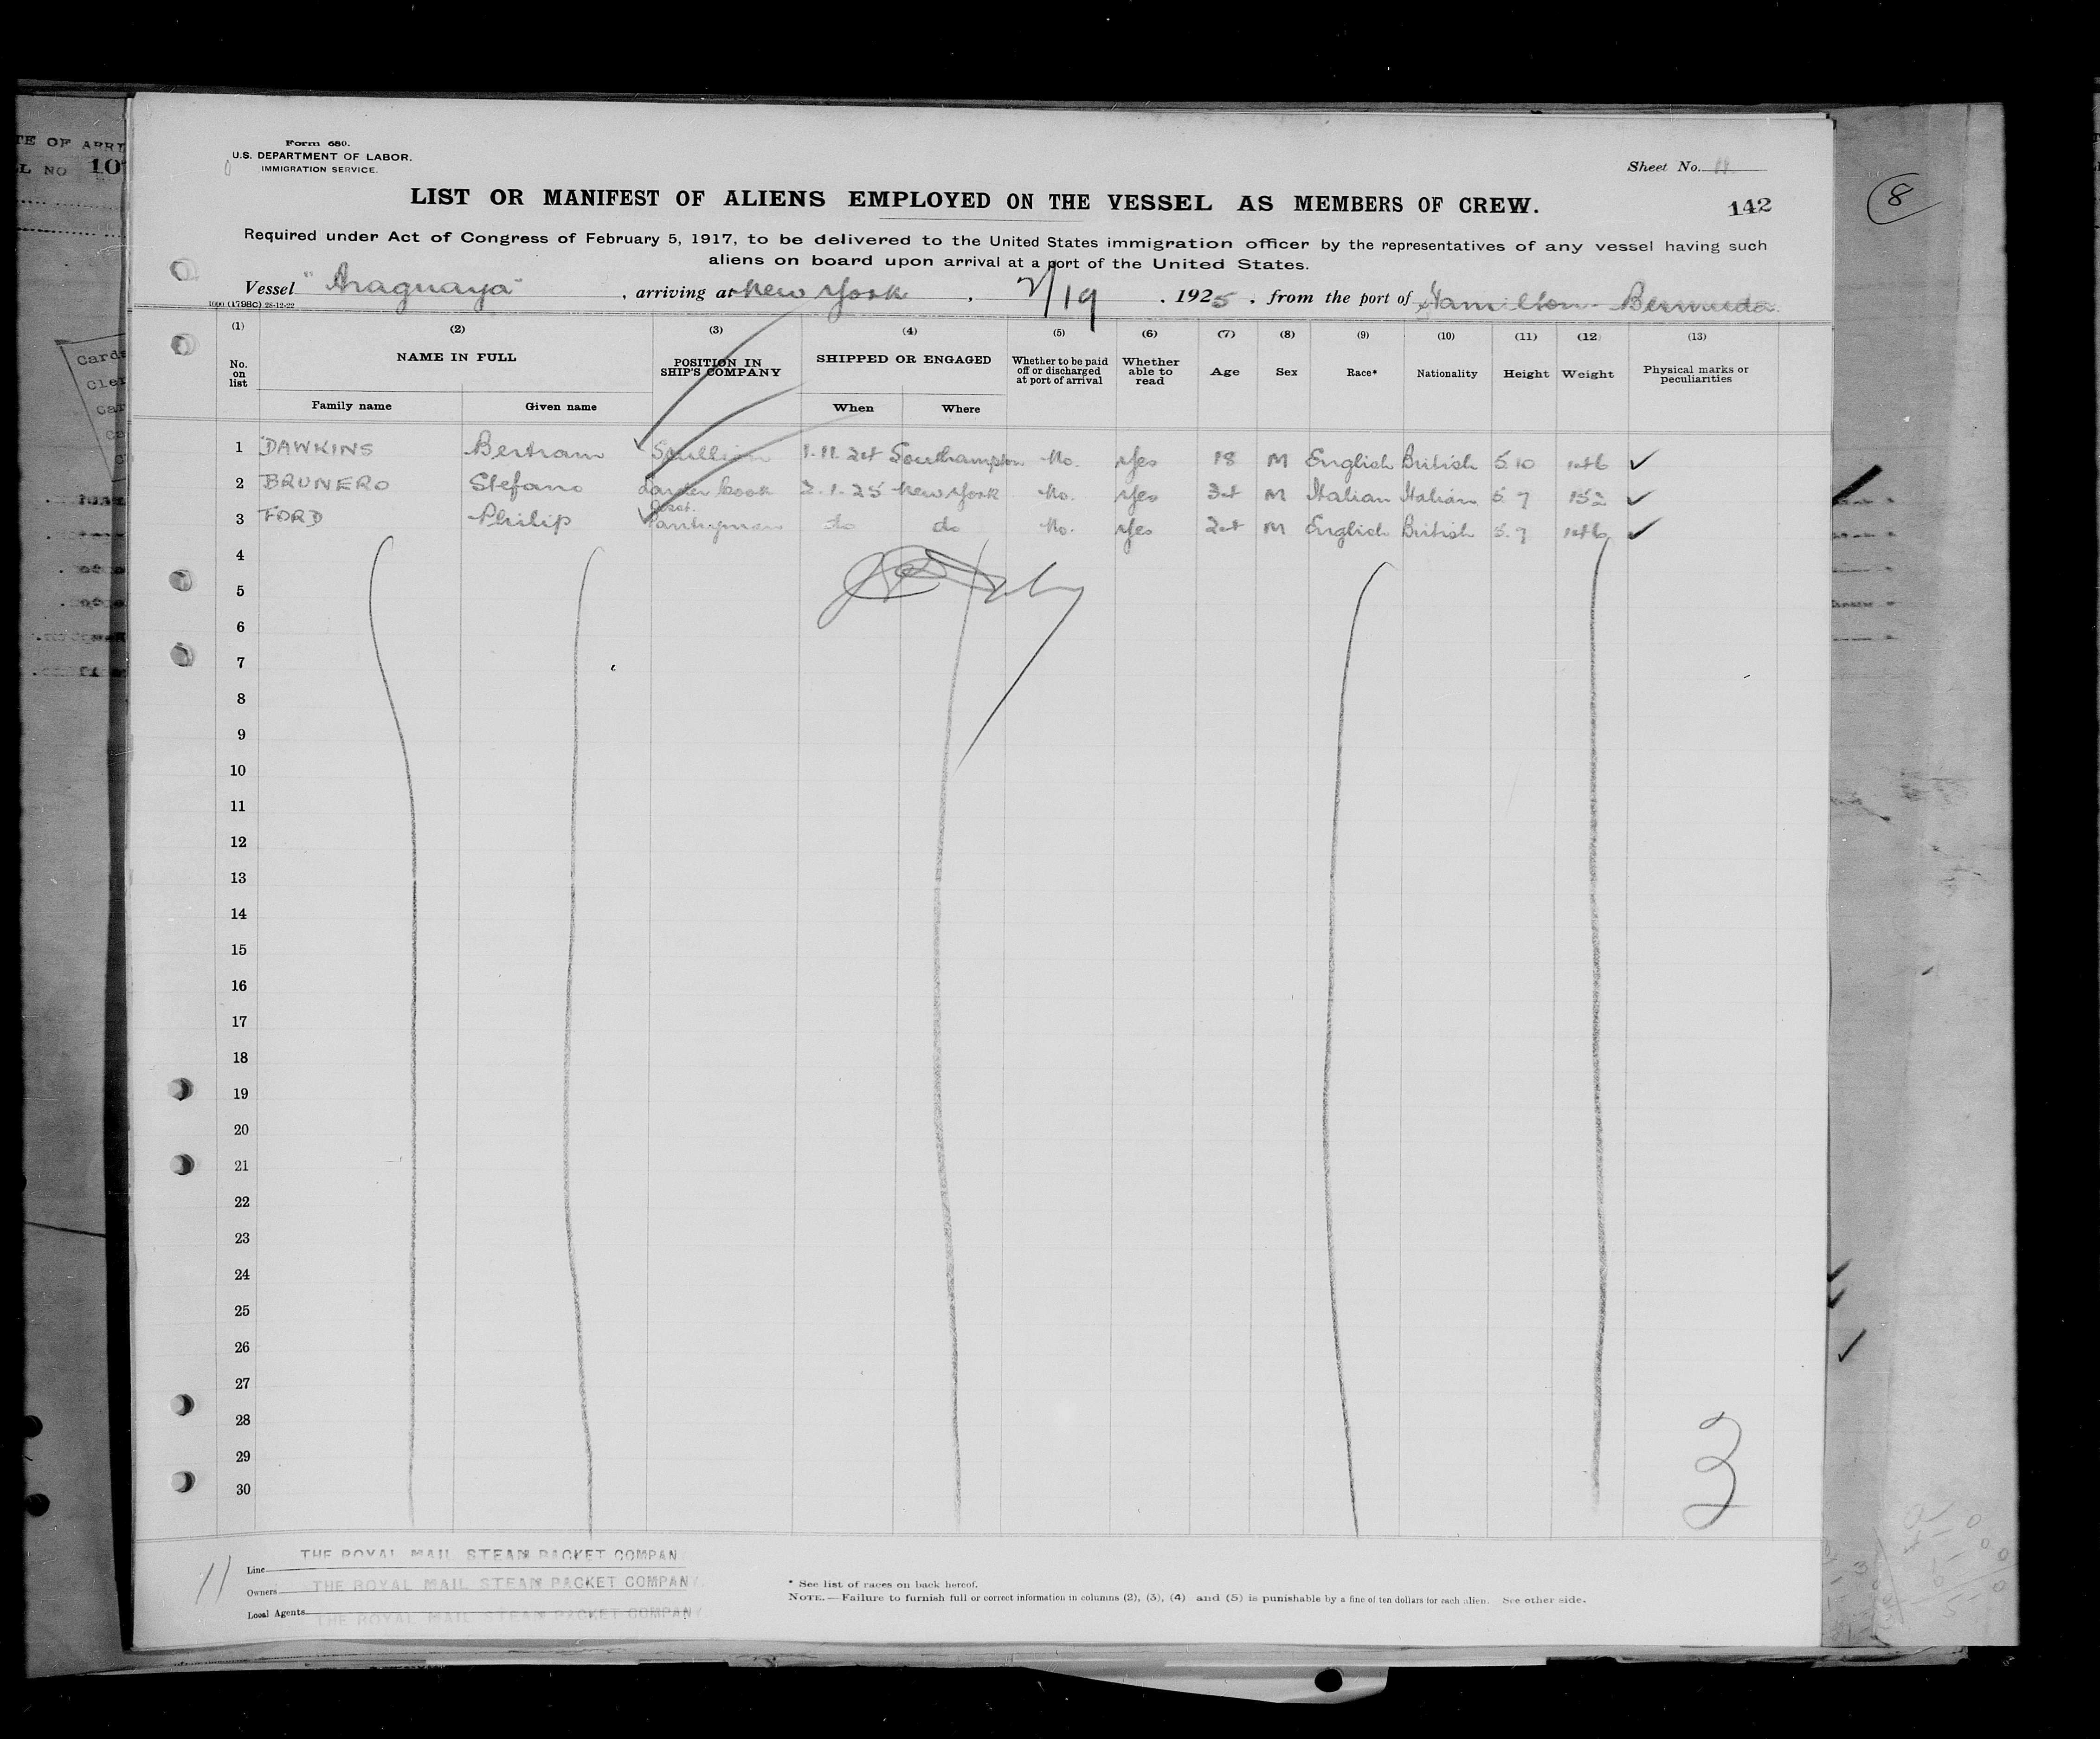 TE OF ARRI
L NO 10
Form 680.
U.S. DEPARTMENT OF LABOR.
IMMIGRATION SERVICE.
Sheet No.
LIST OR MANIFEST OF ALIENS EMPLOYED ON THE VESSEL AS MEMBERS OF CREW.
142
8
Required under Act of Congress of February 5, 1917, to be delivered to the United States immigration officer by the representatives of any vessel having such
aliens on board upon arrival at a port of the United States.
Vessel "Araguaya", arriving at New York, 2/19, 1925, from the port of Hamilton Bermuda.
1000 (1798C) 28-12-22
(1) (2) (3) (4) (5) (6) (7) (8) (9) (10) (11) (12) (13)
No. on list NAME IN FULL POSITION IN SHIP'S COMPANY SHIPPED OR ENGAGED Whether to be paid off or discharged at port of arrival Whether able to read Age Sex Race* Nationality Height Weight Physical marks or peculiarities
Family name Given name When Where
1 DAWKINS Bertram Scullion 1.11.24 Southampton No. Yes 18 M English British 5.10 146 ✓
2 BRUNERO Stefano Larder Cook 2.1.25 New York No. Yes 34 M Italian Italian 5.7 152 ✓
3 FORD Philip Asst. Pantryman do do No. Yes 24 M English British 5.7 146 ✓
4
5
6
7
8
9
10
11
12
13
14
15
16
17
18
19
20
21
22
23
24
25
26
27
28
29
30
3
11
Line THE ROYAL MAIL STEAM PACKET COMPAN
Owners THE ROYAL MAIL STEAM PACKET COMPANY
Local Agents THE ROYAL MAIL STEAM PACKET COMPANY
* See list of races on back hereof.
NOTE.—Failure to furnish full or correct information in columns (2), (3), (4) and (5) is punishable by a fine of ten dollars for each alien. See other side.